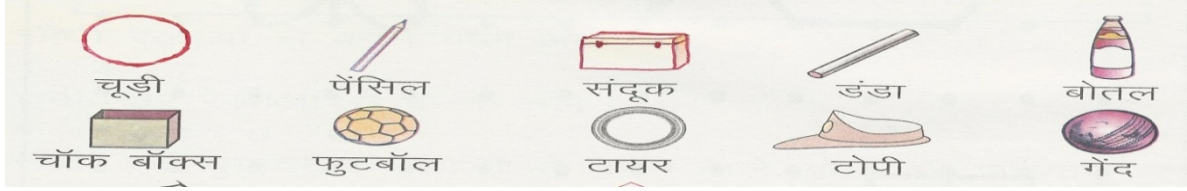 चूड़ी पेंसिल संदूक डंडा बोतल
चॉक बॉक्स फुटबॉल टायर टोपी गेंद